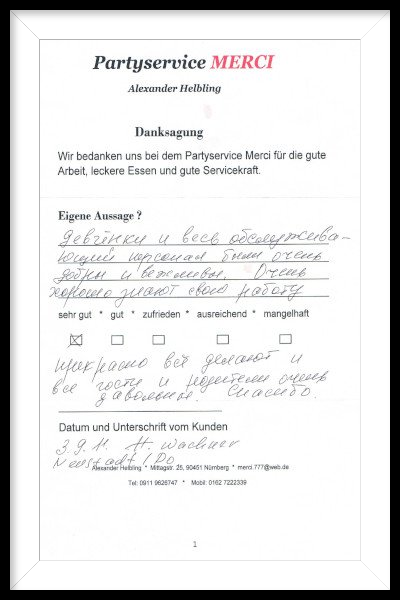 Partyservice MERCI
Alexander Helbling
Danksagung
Wir bedanken uns bei dem Partyservice Merci für die gute
Arbeit, leckere Essen und gute Servicekraft.
Eigene Aussage ?
Девчёнки и весь обслужива-
ющий персонал были очень
добры и вежливы. Очень
хорошо знают свою работу
sehr gut * gut * zufrieden * ausreichend * mangelhaft
прекрасно всё делают и
все гости и родители очень
давольные. Спасибо.
Datum und Unterschrift vom Kunden
3.9.11 H. Wachner
Neustadt / Do
Alexander Helbling * Mittagstr. 25, 90451 Nürnberg * merci.777@web.de
Tel: 0911 9626747 * Mobil: 0162 7222339
1